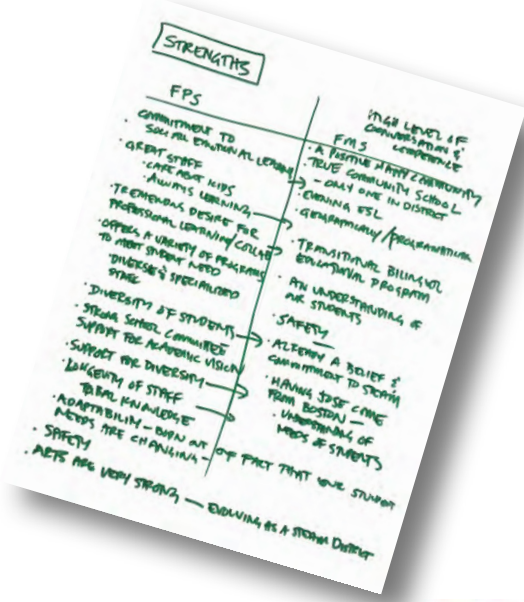 STRENGTHS
FPS
COMMITMENT TO
SOCIAL EMOTIONAL LEARNING
GREAT STAFF
· CARE ABOUT KIDS
· ALWAYS LEARNING
· TREMENDOUS DESIRE FOR
PROFESSIONAL LEARNING/COLLAB
· OFFERS A VARIETY OF PROGRAMS
TO MEET STUDENT NEED
DIVERSE & SPECIALIZED
STAFF
· DIVERSITY OF STUDENTS
· STRONG SCHOOL COMMITTEE
SUPPORT FOR ACADEMIC VISION
· SUPPORT FOR DIVERSITY
· LONGEVITY OF STAFF
KNOWLEDGE
· ADAPTABILITY – BORN OUT OF FACT THAT OUR STUDENT
NEEDS ARE CHANGING –
· SAFETY
· ARTS ARE VERY STRONG — EVOLVING AS A STEAM DISTRICT
HIGH LEVEL OF
CONVERSATION &
COMPETENCE
FMS
· A POSITIVE HAPPY COMMUNITY
· TRUE COMMUNITY SCHOOL
– ONLY ONE IN DISTRICT
· EVENING ESL
· GEOGRAPHICALLY/PROGRAMMATICALLY
· TRANSITIONAL BILINGUAL
EDUCATIONAL PROGRAM
· AN UNDERSTANDING OF
OUR STUDENTS
· SAFETY
· ALREADY A BELIEF &
COMMITMENT TO STEAM
· HAVING JOSE COME
FROM BOSTON –
· UNDERSTANDING OF
NEEDS OF STUDENTS